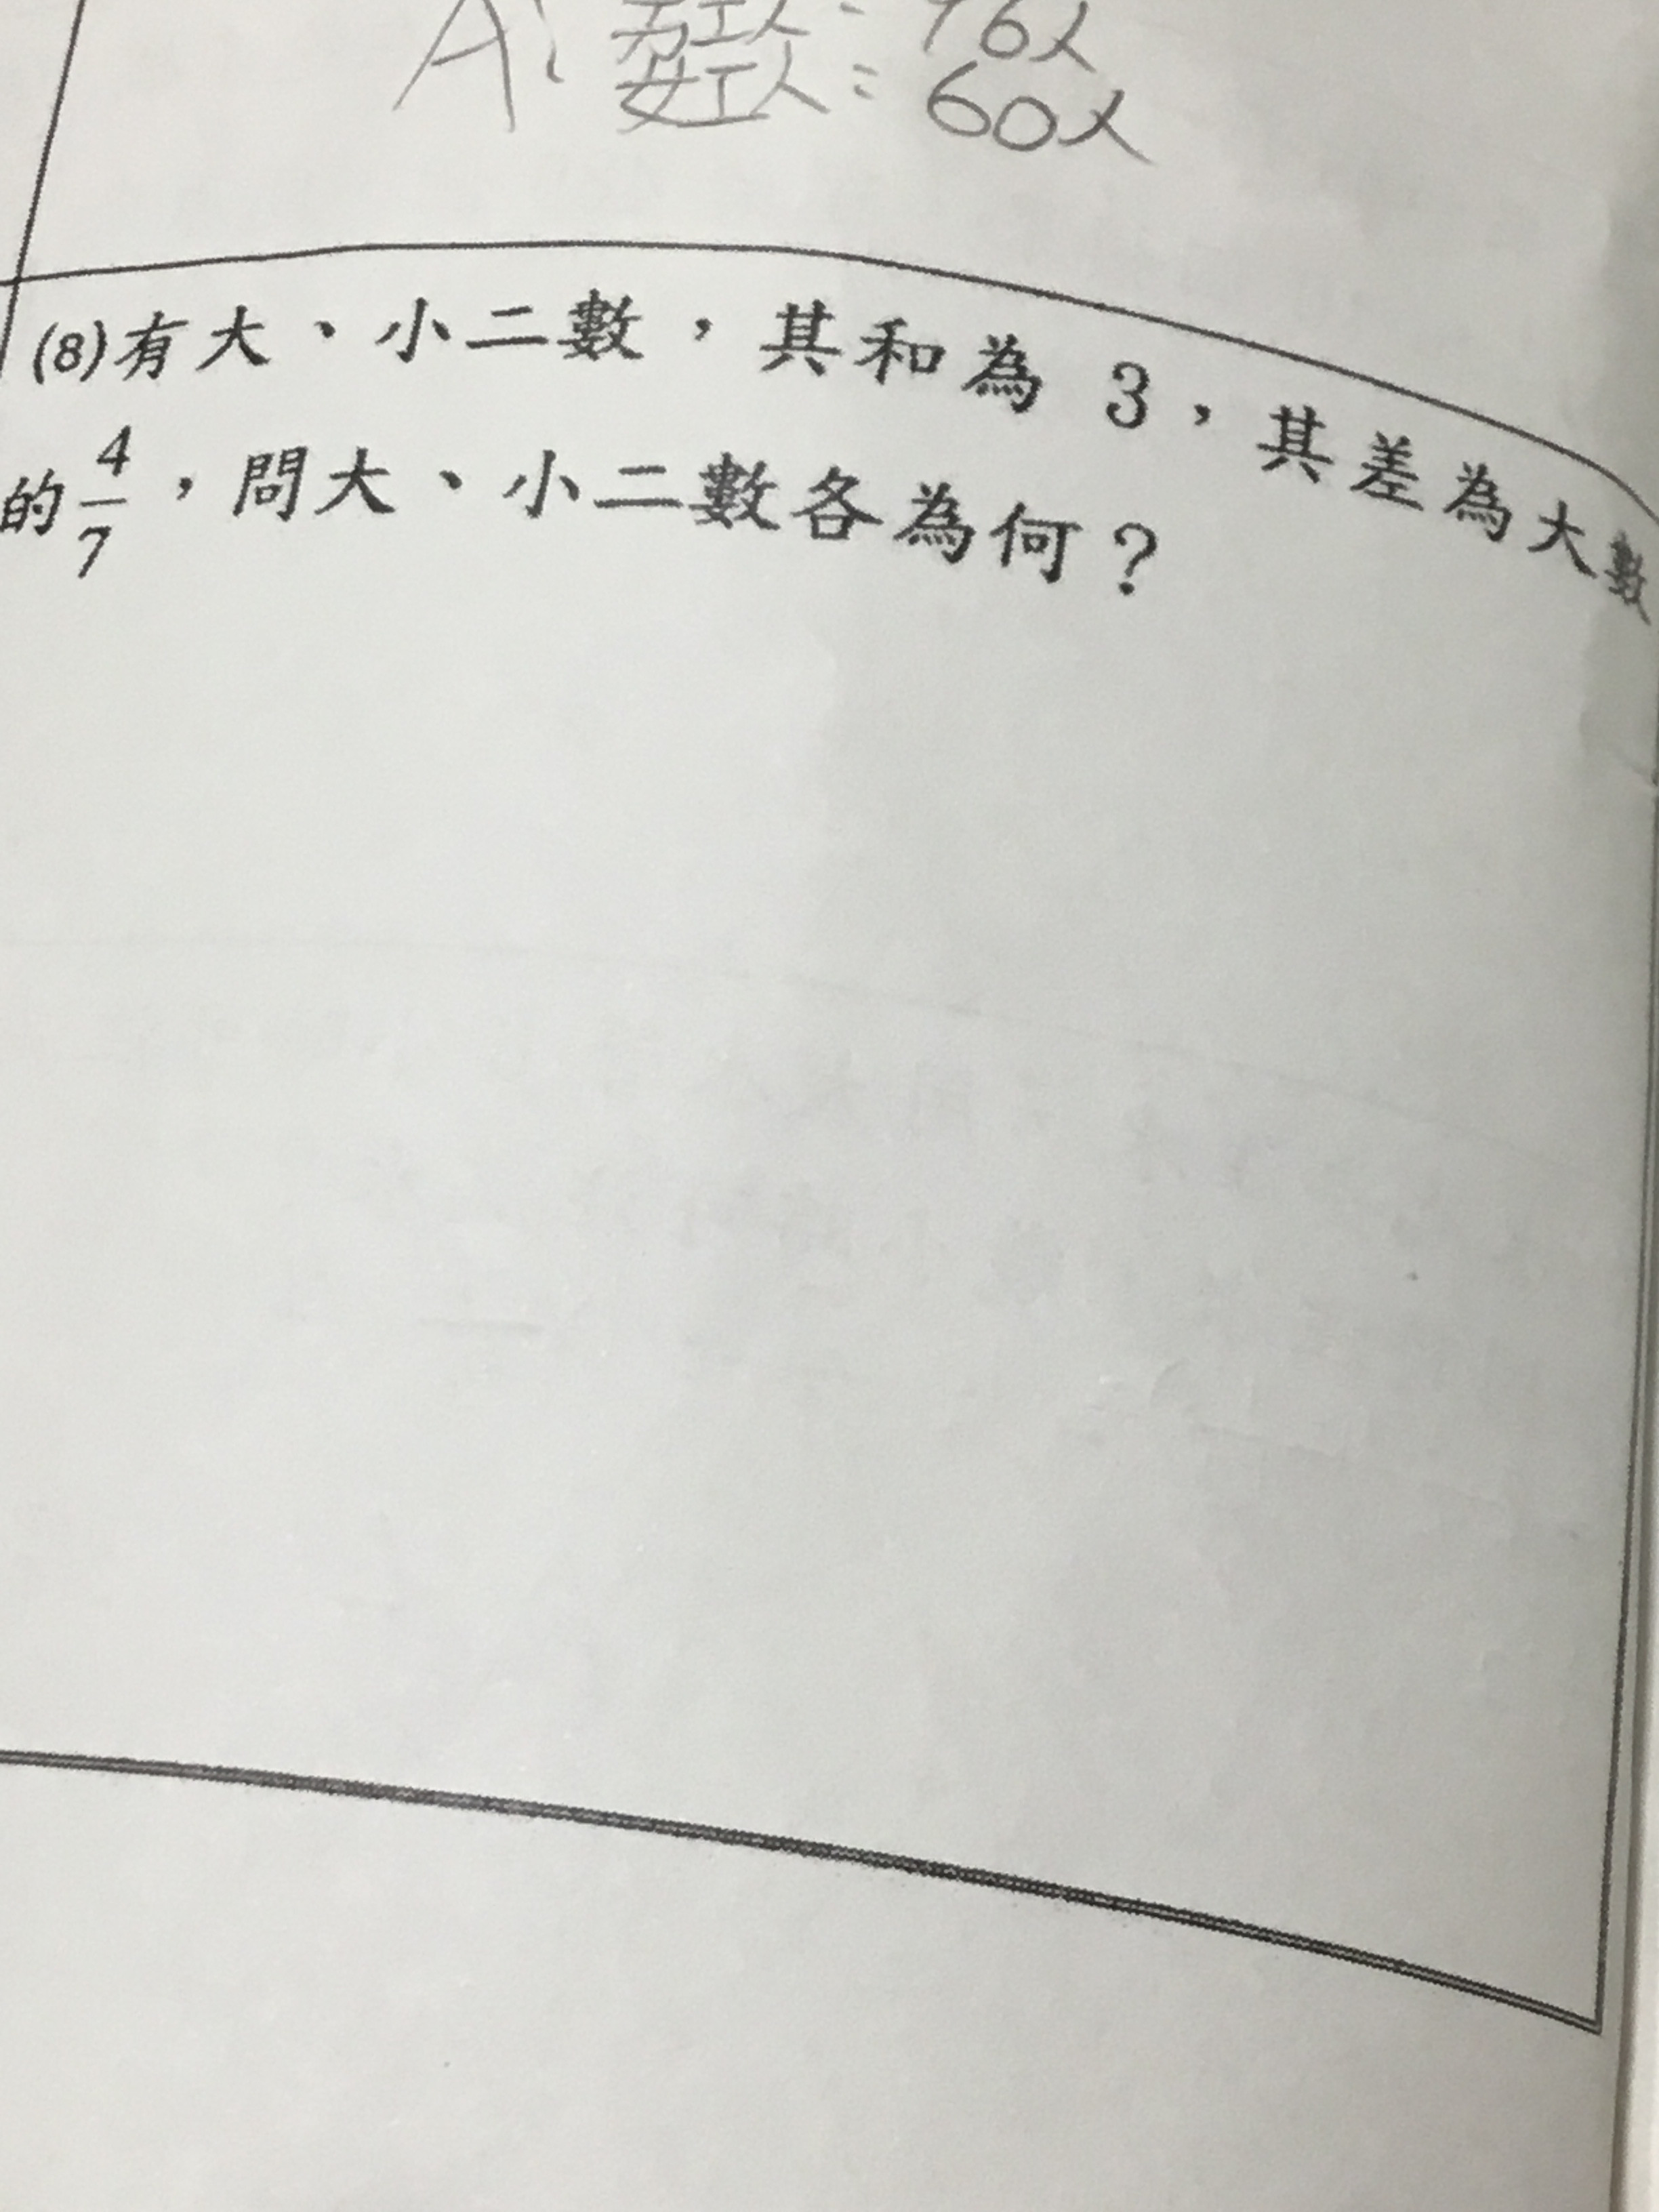 A: 男工人: 76人
女工人: 60人
(8)有大、小二數，其和為 3，其差為大數
的4/7，問大、小二數各為何？